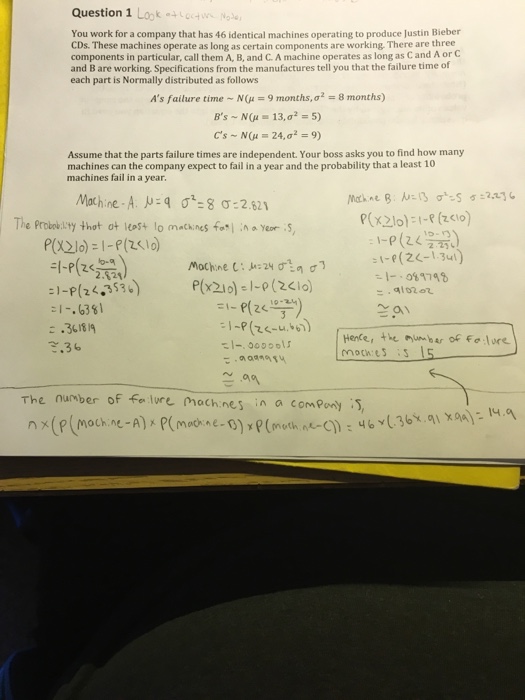 Question 1 Look at Lecture Notes
You work for a company that has 46 identical machines operating to produce Justin Bieber
CDs. These machines operate as long as certain components are working. There are three
components in particular, call them A, B, and C. A machine operates as long as C and A or C
and B are working. Specifications from the manufactures tell you that the failure time of
each part is Normally distributed as follows
A's failure time ~ N(μ = 9 months, σ² = 8 months)
B's ~ N(μ = 13, σ² = 5)
C's ~ N(μ = 24, σ² = 9)
Assume that the parts failure times are independent. Your boss asks you to find how many
machines can the company expect to fail in a year and the probability that a least 10
machines fail in a year.
Machine-A: μ=9 σ²=8 σ=2.821
The Probability that at least 10 machines fail in a year is,
P(X≥10)=1-P(Z<10)
=1-P(Z<10-9/2.829)
=1-P(Z<.3536)
=1-.6381
=.361819
≅.36
Machine C: μ=24 σ²=9 σ3
P(X≥10)=1-P(Z<10)
=1-P(Z<10-24/3)
=1-P(Z<-4.667)
=1-.0000015
=.9999984
≅.99
Machine B: μ=13 σ²=5 σ=2.236
P(X≥10)=1-P(Z<10)
=1-P(Z<10-13/2.236)
=1-P(Z<-1.341)
=1-.089798
=.910202
≅.91
Hence, the number of failure
machies is 15
The number of failure machines in a company is,
n×(P(Machine-A)×P(Machine-B)×P(machine-C))=46×(.36×.91×.99)=14.9